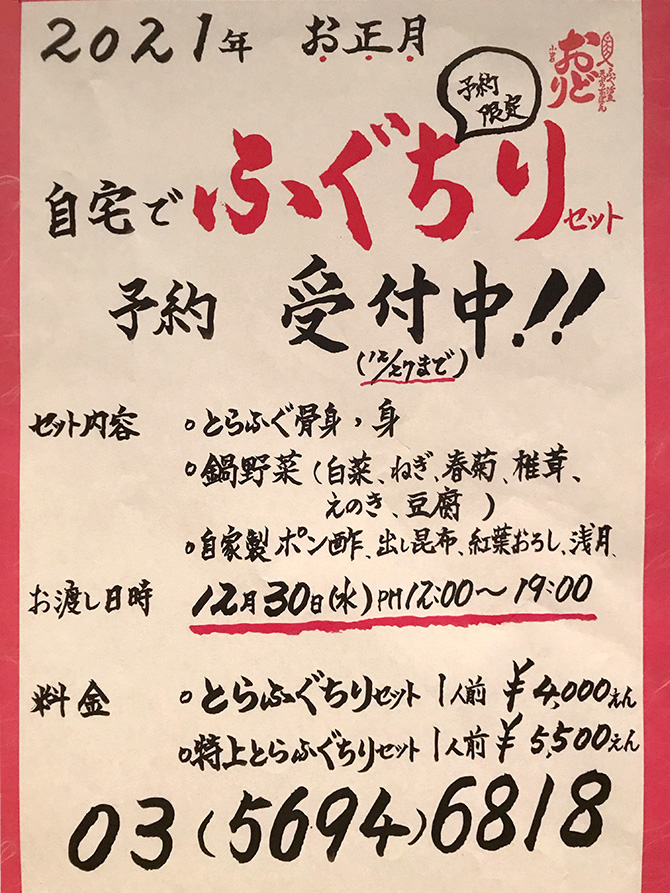 2021年 お正月
予約
限定
おどり
自宅で ふぐちり セット
予約 受付中!!
(12/27まで)
セット内容 ○とらふぐ骨身、身
○鍋野菜(白菜、ねぎ、春菊、椎茸、
えのき、豆腐)
○自家製ポン酢、出し昆布、紅葉おろし、浅月、
お渡し日時 12月30日(水)PM12:00〜19:00
料金 ○とらふぐちりセット 1人前 ¥4,000えん
○特上とらふぐちりセット 1人前 ¥5,500えん
03(5694)6818